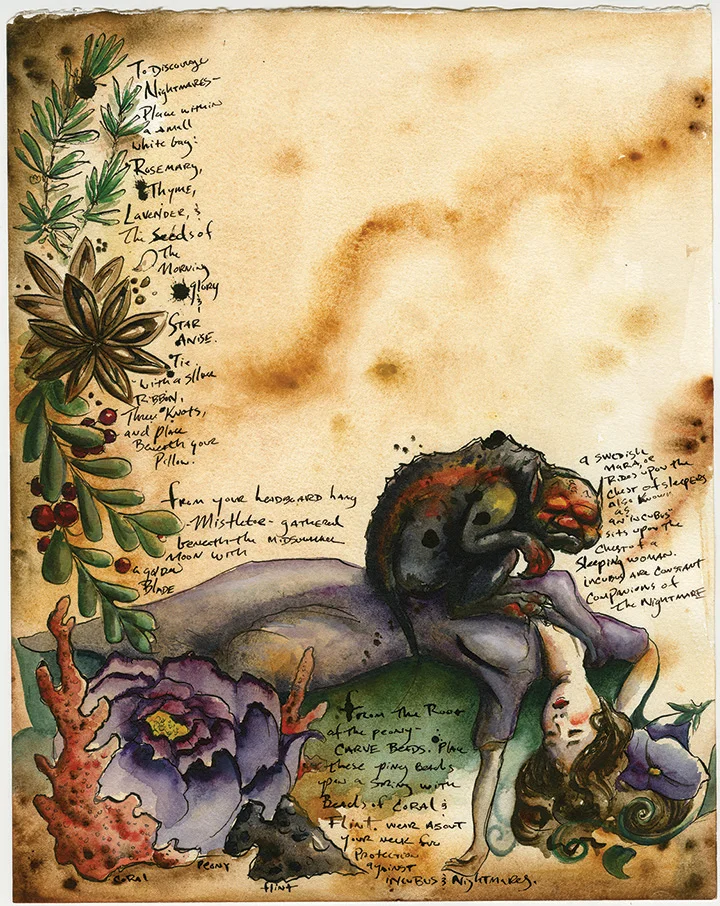 To Discourage
Nightmares-
Place within
a small
white bag:
Rosemary,
Thyme,
Lavender, &
The Seeds of
The
Morning
glory
&
Star
Anise.
Tie
with a Silver
Ribbon,
Three Knots,
and place
Beneath your
Pillow.
from your headboard hang
Mistletoe- gathered
beneath the midsummer
moon with
a golden
Blade
a Swedish
Mara, or
Rides upon the
Chest of sleepers
also known
as
an incubus
sits upon the
chest of a
sleeping woman.
incubus are constant
companions of
The Nightmare
from the Root
of the peony-
Carve Beads. Place
these piny beads
upon a string with
Beads of Coral &
Flint. wear about
your neck for
Protection
against
incubus & Nightmares.
Coral
Peony
flint